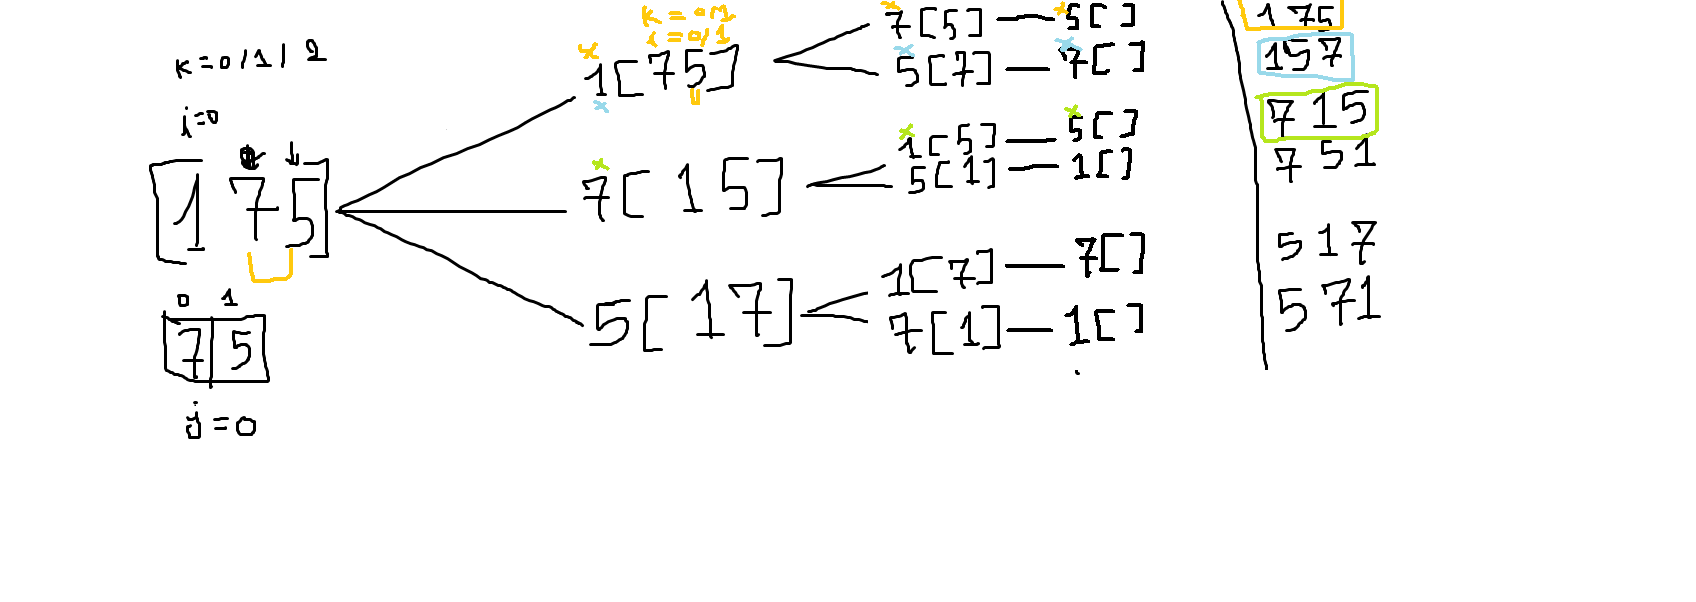 k = 0 / 1 / 2
i=0
[1 7 5]
0 1
7 5
j = 0
k = 0/1
i = 0/1
1[75]
7[ 1 5]
5[ 17]
7[5] 5[ ]
5[7] 7[ ]
1[5] 5[ ]
5[1] 1[]
1[7] 7[]
7[1] 1[ ]
175
157
715
751
517
571